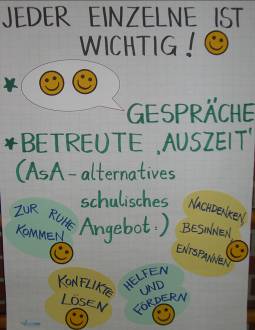 JEDER EINZELNE IST
WICHTIG!
* GESPRÄCHE
* BETREUTE 'AUSZEIT'
(ASA - alternatives
schulisches
Angebot:)
ZUR RUHE
KOMMEN
NACHDENKEN,
BESINNEN,
ENTSPANNEN
KONFLIKTE
LÖSEN
HELFEN
UND
FÖRDERN